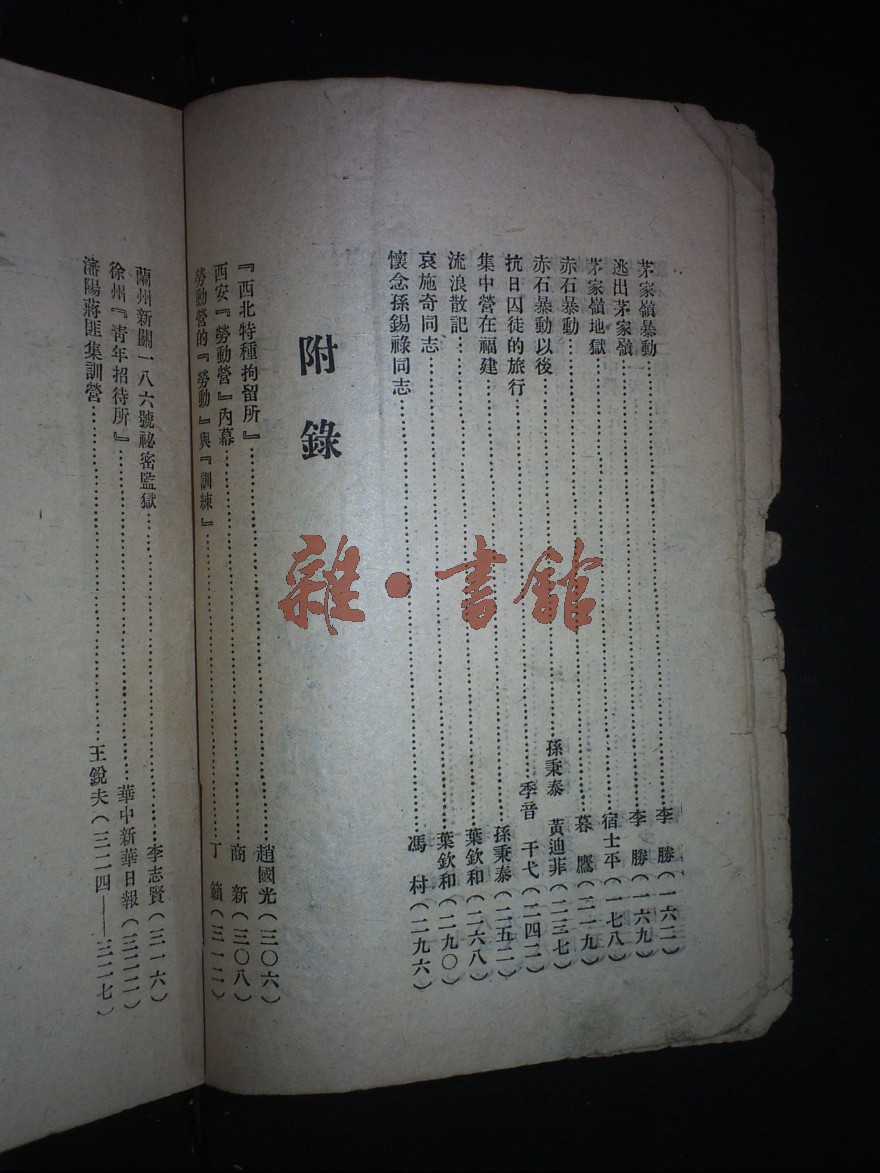 茅家嶺暴動……李勝(一六二)
逃出茅家嶺……李勝(一六九)
茅家嶺地獄……宿士平(一七八)
赤石暴動……暮鷹(二一九)
赤石暴動以後……孫秉泰 黃迪菲(二三七)
抗日囚徒的旅行……季音 干戈(二四二)
集中營在福建……孫秉泰(二五二)
流浪散記……葉欽和(二六八)
哀施奇同志……葉欽和(二九〇)
懷念孫錫祿同志……馮村(二九六)
附錄
『西北特種拘留所』……趙國光(三〇六)
西安『勞動營』內幕……商新(三〇八)
勞動營的『勞動』與『訓練』……丁籟(三一二)
蘭州新關一八六號祕密監獄……李志賢(三一六)
徐州『青年招待所』……華中新華日報(三二二)
瀋陽蔣匪集訓營……王銳夫(三二四——三二七)
雜·書館